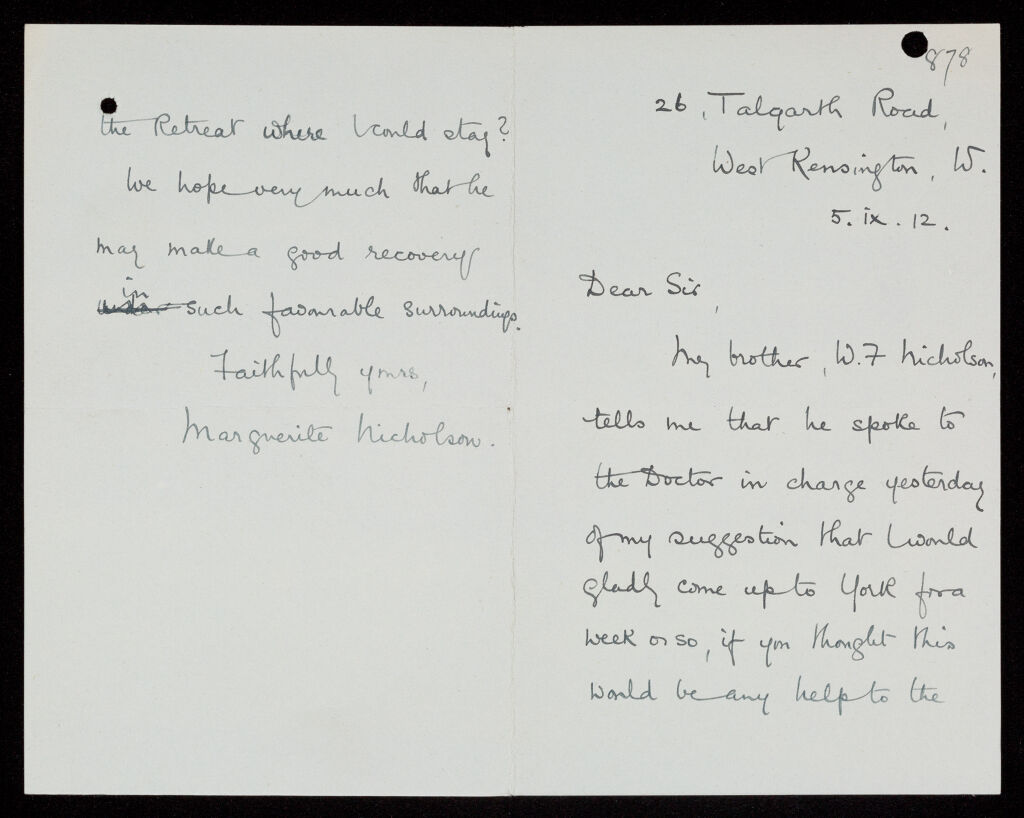 878
26, Talgarth Road,
West Kensington, W.
5. ix. 12.
Dear Sir,
My brother, W. F Nicholson,
tells me that he spoke to
the Doctor in charge yesterday
of my suggestion that I would
gladly come up to York for a
week or so, if you thought this
would be any help to the
the Retreat where I could stay?
We hope very much that he
may make a good recovery
in such favourable surroundings.
Faithfully yours,
Marguerite Nicholson.